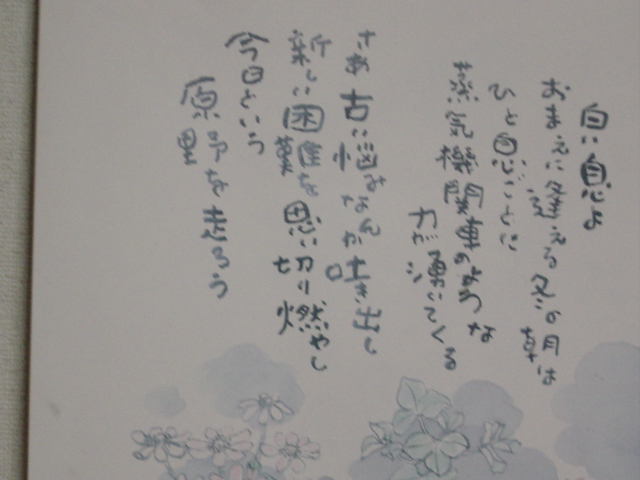 白い息よ
おまえに逢える冬の朝は
ひと息ごとに
蒸気機関車のような
力が湧いてくる
さあ古い悩みなんか吐き出し
新しい困難を思い切り燃やし
今日という
原野を走ろう